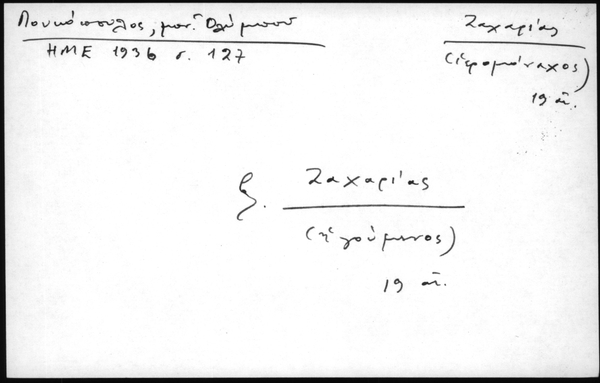 Λουκόπουλος, μον. Ολύμπου
ΗΜΕ 1936 σ. 127
Ζαχαρίας
(ἱερομόναχος)
19 αἰ.
βλ. Ζαχαρίας
(ἡγούμενος)
19 αἰ.